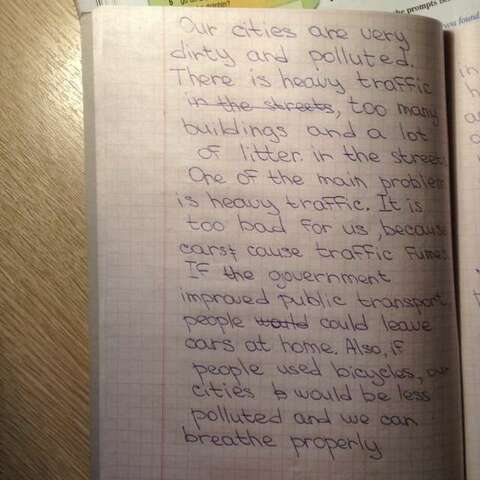 the prompts be
you found
Our cities are very
dirty and polluted.
There is heavy traffic
in the streets, too many
buildings and a lot
of litter in the street
One of the main problem
is heavy traffic. It is
too bad for us, because
cars cause traffic fumes
If the government
improved public transport,
people would could leave
cars at home. Also, if
people used bicycles, our
cities b would be less
polluted and we can
breathe properly